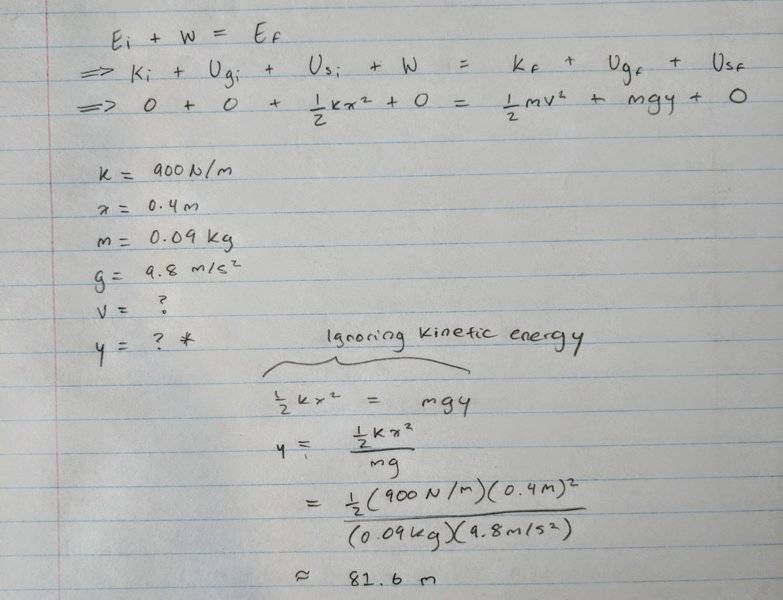 Ei + W = Ef
⟹ Ki + Ugi + Usi + W = Kf + Ugf + Usf
⟹ 0 + 0 + 1/2 kx² + 0 = 1/2 mv² + mgy + 0
k = 900 N/m
x = 0.4 m
m = 0.09 kg
g = 9.8 m/s²
v = ?
y = ? *
Ignoring kinetic energy
1/2 kx² = mgy
y = (1/2 kx²)/(mg)
= (1/2 (900 N/m)(0.4 m)²)/((0.09 kg)(9.8 m/s²))
≈ 81.6 m